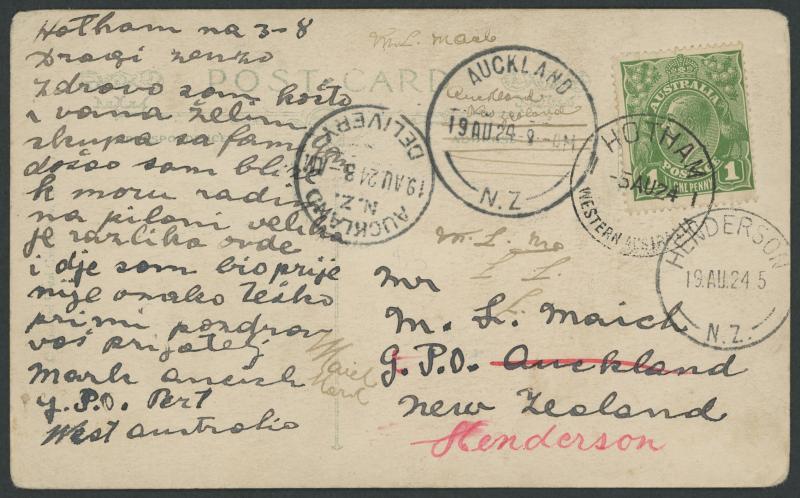 Hotham na 3-8
Dragi
Zdravo sam košto
i vama želim
skupa sa fam
došao sam bliže
k moru radim
na pilani velika
je razlika ovde
i dje sam bio prije
nije onako teško
primi pozdrav
vaš prijatelj
Mark
G.P.O. Pert
West australio
POST CARD
M. L. Maich
AUCKLAND
Auckland
New Zealand
19 AU 24 8 - AM
N.Z
AUCKLAND
N.Z.
19 AU 24 8
DELIVERY
AUSTRALIA
POSTAGE
1
1
ONE PENNY
HOTHAM
-5 AU 24
WESTERN AUSTRALIA
HENDERSON
19. AU. 24. 5
N.Z.
M. L.
Mr
M. L. Maich
G.P.O. Auckland
New Zealand
Henderson
Maich